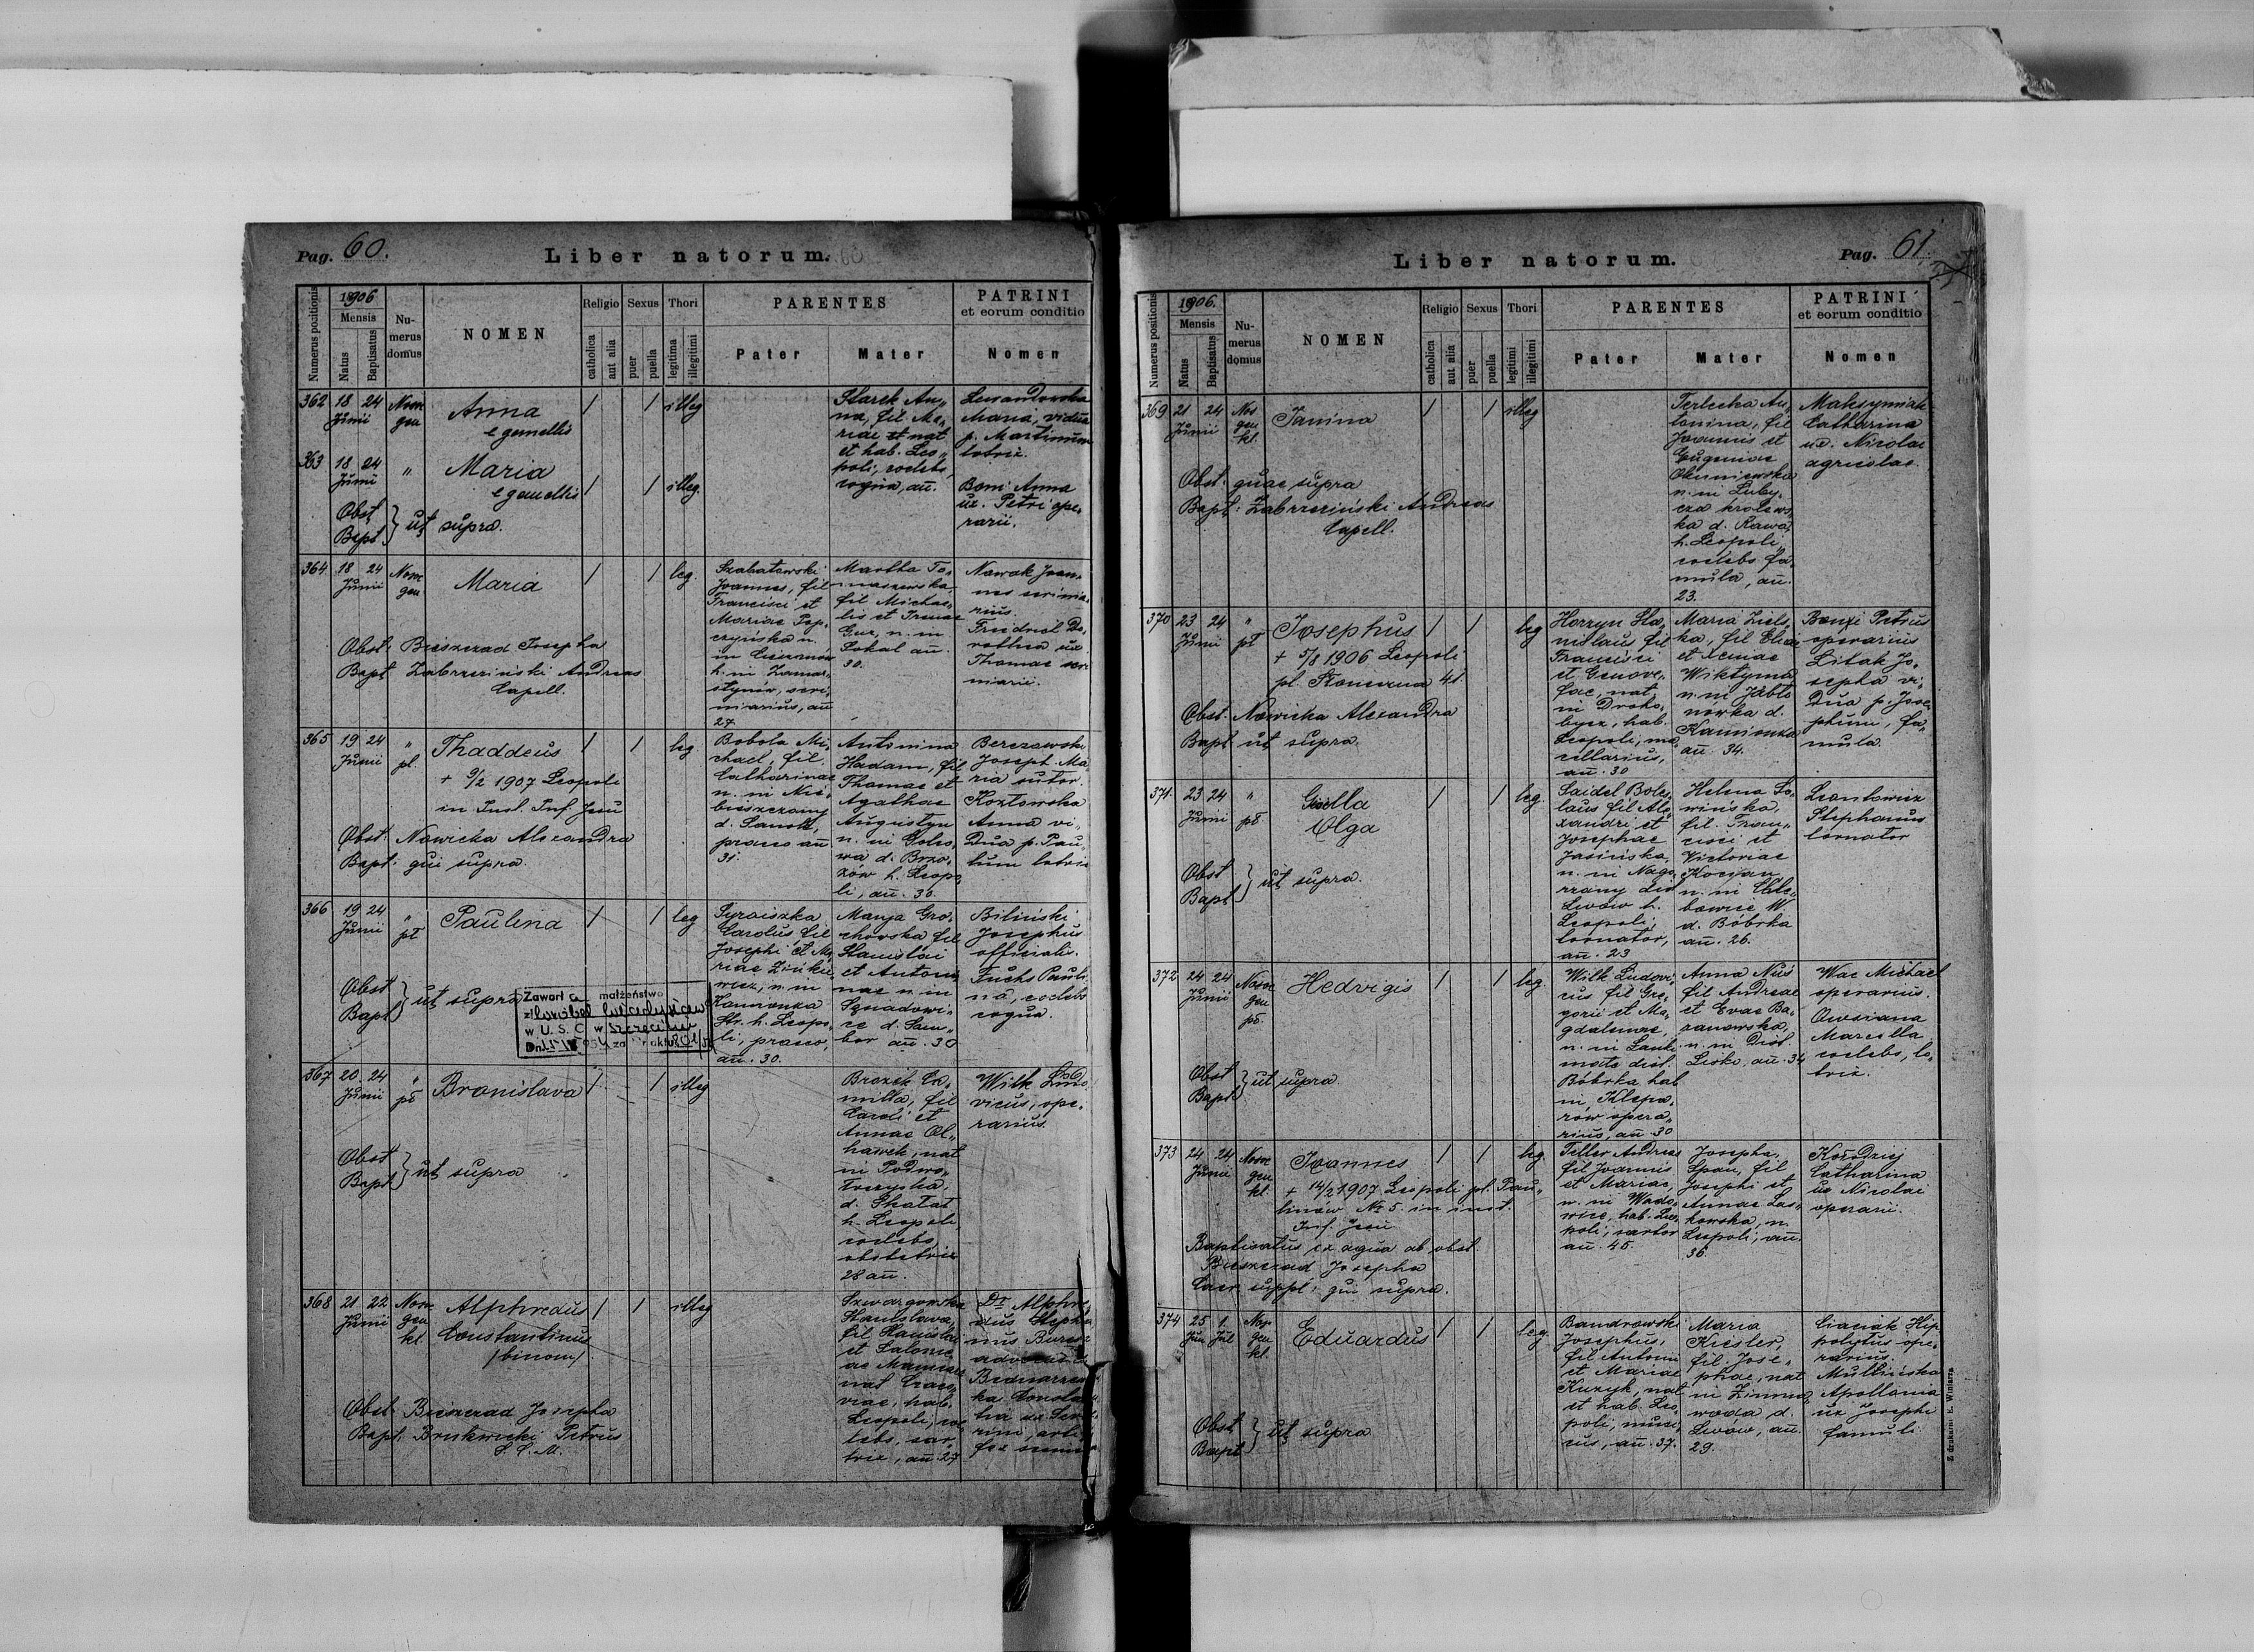 Pag. 60.
Liber natorum.
Numerus positionis
1906
Mensis
Natus
Baptisatus
Nu-
merus
domus
NOMEN
Religio
catholica
aut alia
Sexus
puer
puella
Thori
legitima
illegitimi
PARENTES
Pater
Mater
PATRINI
et eorum conditio
Nomen
362
18 24
Junii
Anna
e gemellis
/ / illeg
Starek An„
na, fil. Ma„
riae et nat
et hab. Leo„
poli, coelebs,
cogua, an.
Lewandowska
Maria, vidua
p. Martinum
lotrix.
363
18 24
Junii
"
Maria
e gemellis
/ / illeg.
Bom Anna
ux. Petri ope„
rarii.
Obst.
Bapt } ut supra.
364
18 24
Junii
Maria
/ / leg.
Szabatowski
Joannes, fil
Francisci et
Mariae Pop„
czyńska n.
h. in Zamar„
stynów, scri„
niarius, an
27
Martha To„
maszewska,
fil Michae„
lis et Irenae
Guz, n. in
Sokal an.
30.
Nowak Joan„
nes scrinia„
rius.
Friedrich Do„
rothea ux.
Thomae scri
niarii.
Obst. Bieszczad Josepha
Bapt Zabrzeziński Andreas
Capell.
365
19 24
Junii
" pl.
Thaddeus
+ 9/2 1907 Leopoli
in Inst. Inf. Jesu
/ / leg
Bobola Mi„
chael, fil.
Catharinae
n. in Nie„
bieszczany
d. Sanok,
an
31.
Antonina
Hadam, fil
Thomae et
Agathae
Augustyn
n. in Golco„
wa d. Brzo„
zów h. Leopo
li, an. 30.
Berezowski
Joseph. Ma
ria sutor.
Kozłowska
Anna vi„
dua p. Pau„
lum lotrix
Obst. Nowicka Alexandra
Bapt. qui supra.
366
19 24
Junii
" pł
Paulina
/ / leg
Carolus, fil
Josephi et Ma
riae Zinkie„
wicz, n. in
Kamionka
Str. h. Leopo„
li,
an. 30.
Marya Gro„
chowska fil
Stanislai
et Antoni„
nae n. in
d. Sam„
bor an. 30
Biliński
Josephus
officialis.
Fuchs Pauli
na, coelebs
cogua.
Obst
Bapt } ut supra
Zawarł a małżeństwo
w U. S. C. w Szczecinie
367
20 24
Junii
" pł
Bronislava
/ / illeg
Brozek Ca„
milla, fil
Caroli et
Annae Ol„
hawek, nat
in Podwo„
łoczyska,
d. Skałat
h. Leopoli
coelebs
obstetrix
28 an.
Wilk Ludo„
vicus, ope„
rarius.
Obst
Bapt } ut supra
368
21 22
Junii
Alphredus
Constantinus
/binom/.
/ / illeg
Stanislava,
fil Stanislai
et Salome
ae
nat Craco„
viae, hab.
Leopoli, coe
lebs, sar„
trix, an. 27
Dr Alphre„
dus Stepha
nus
Obst. Bieszczad Josepha
Bapt. Brukwicki Petrus
S. C. M.
Pag. 61.
Liber natorum.
Numerus positionis
1906.
Mensis
Natus
Baptisatus
Nu-
merus
domus
NOMEN
Religio
catholica
aut alia
Sexus
puer
puella
Thori
legitimi
illegitimi
PARENTES
Pater
Mater
PATRINI
et eorum conditio
Nomen
369
21 24
Junii
Janina
/ / illeg
Terlecka An„
tonina, fil
Joannis et
Eugeniae
Okuniewska
n. in Luby„
cza królews
ka d. Rawa,
h. Leopoli,
coelebs fa„
mula, an.
23.
Maksymiak
Catharina
ux. Nicolai
agricolae.
Obst. quae supra
Bapt: Zabrzeziński Andreas
Capell.
370
23 24
Junii
" pł
Josephus
+ 5/8 1906 Leopoli
pl. 41
/ / leg
Horzyn Sta„
nislaus fil
Francisci
et Genove„
fae, nat,
in Droho„
bycz, hab.
Leopoli, ma„
cellarius,
an. 30
Maria Ziels„
ka, fil Eliae
et Xeniae
n. in Jabło
nówka d.
Kamionka
an. 34.
Petrus
operarius
Litak Jo„
sepha vi„
dua p. Jose„
phum, fa„
mula.
Obst. Nowicka Alexandra
Bapt ut supra.
371.
23 24
Junii
" pł
Gisella
Olga
/ / leg.
Saidel Boles„
laus fil Ale„
xandri et
Josephae
Jasińska,
n. in Nago„
rzany dis
Lwów h.
Leopoli,
tornator,
an. 23
Helena So„
wińska,
fil. Fran„
cisci et
Victoriae
Kocjan
n. in Chle„
bowice W.
d. Bóbrka
an. 26.
Leontowicz
Stephanus
tornator
Obst
Bapt } ut supra.
372
24 24
Junii
Hedvigis
/ / leg.
Wilk Ludovi„
cus fil Gre„
gorii et Ma„
gdalenae,
n. in
dist.
Bóbrka hab
in Klepa„
rów opera„
rius, an. 30
Anna Nus
fil Andreae
et Evae Ba„
ranowska,
n. in Dist.
Lisko, an. 34
Wac Michael
operarius.
Owsiana
Marcella,
coelebs, lo„
trix.
Obst
Bapt } ut supra
373
24 24
Junii
Joannes
+ 14/2 1907 Leopoli pl. Pau„
linów № 5. in inst.
Inf. Jesu
/ / leg.
Teller Andreas
fil Joannis
et Mariae,
n. in Wado„
wice, hab. Leo„
poli, sartor
an. 45.
Josepha
Span, fil
Josephi et
Annae Las„
kowska, n.
Leopoli, an.
36.
Kołodziej
Catharina
ux Nicolai
operarii.
Baptisatus ex aqua ab obst.
Bieszczad Josepha
Caer. suppl. qui supra.
374
25 1.
Jun Jul
Eduardus
/ / leg.
Bandrowski
Josephus,
fil Antonii
et Mariae
Kuzyk, nat
et hab. Leo„
poli, musi„
cus, an. 37.
Maria
Kiesler,
fil. Jose„
phae, nat
in Zimna
woda d.
Lwów, an.
29.
Ciaciak Hip
polytus ope„
rarius.
Mulinska
Apollonia
ux Josephi
famuli.
Obst
Bapt } ut supra
Z drukarni E. Winiarza